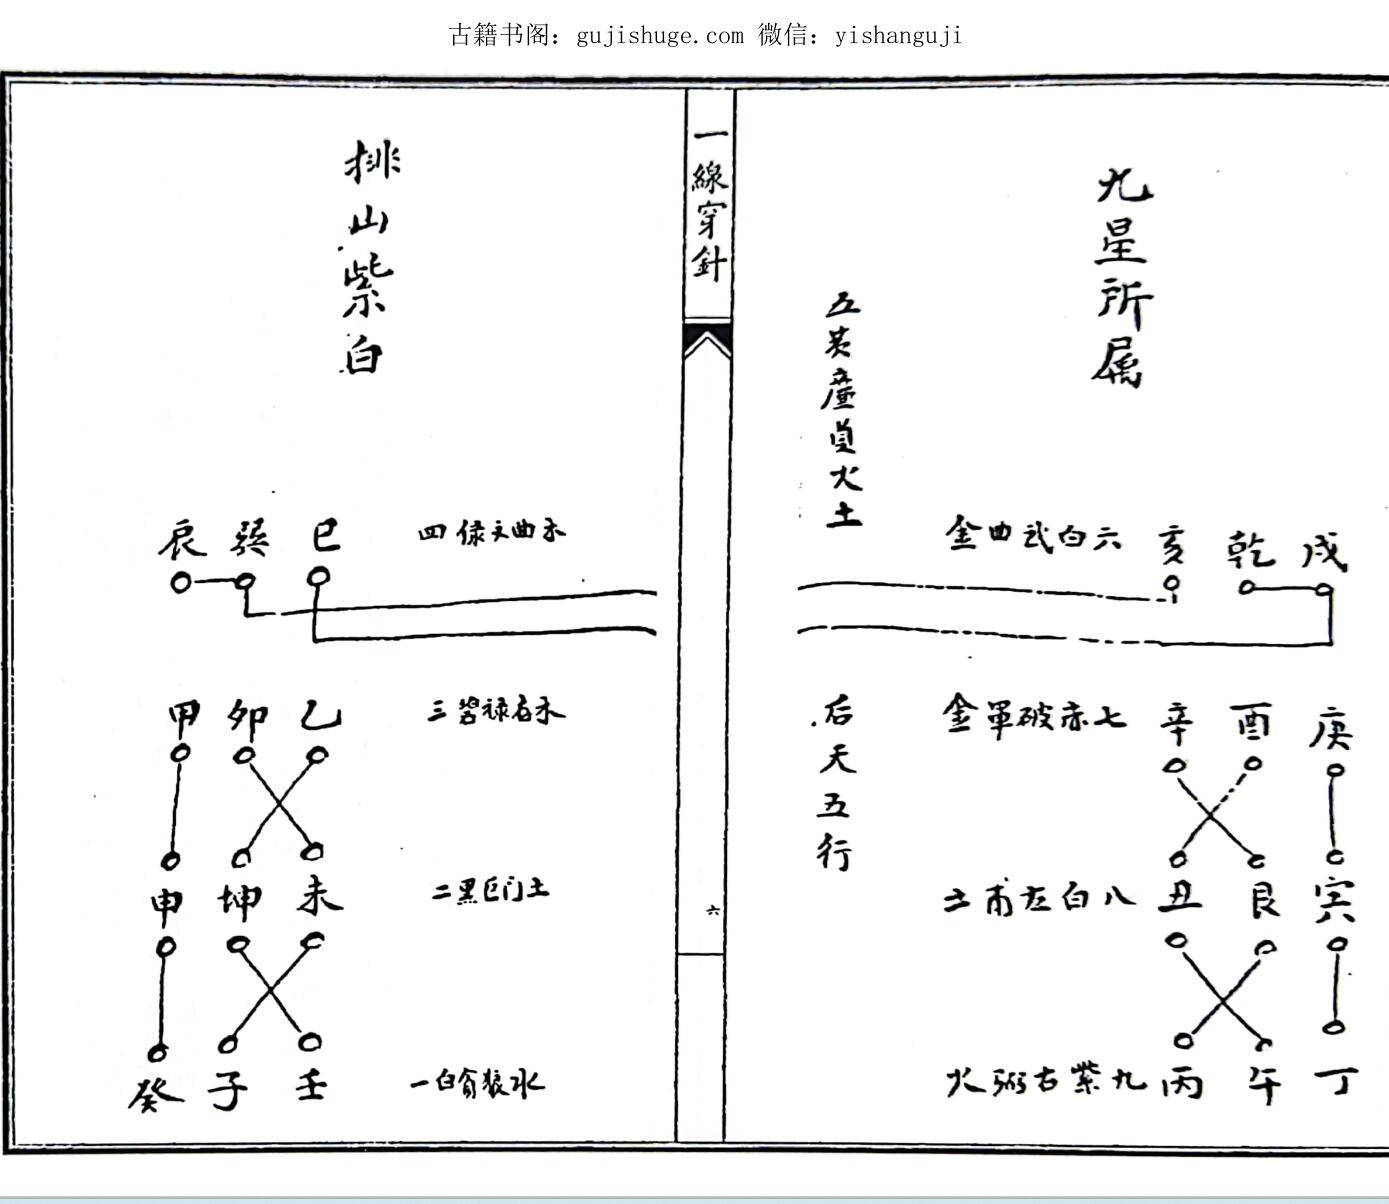 古籍书阁：gujishuge.com 微信：yishanguji
九星所属
五黄廉貞火土
后天五行
六白武曲金
亥 乾 戌
七赤破軍金
辛 酉 庚
八白左甫土
丑 艮 寅
九紫右弼火
丙 午 丁
一線穿針
六
排山紫白
辰 巽 巳
四绿文曲木
甲 卯 乙
三碧禄存木
申 坤 未
二黑巨门土
癸 子 壬
一白貪狼水